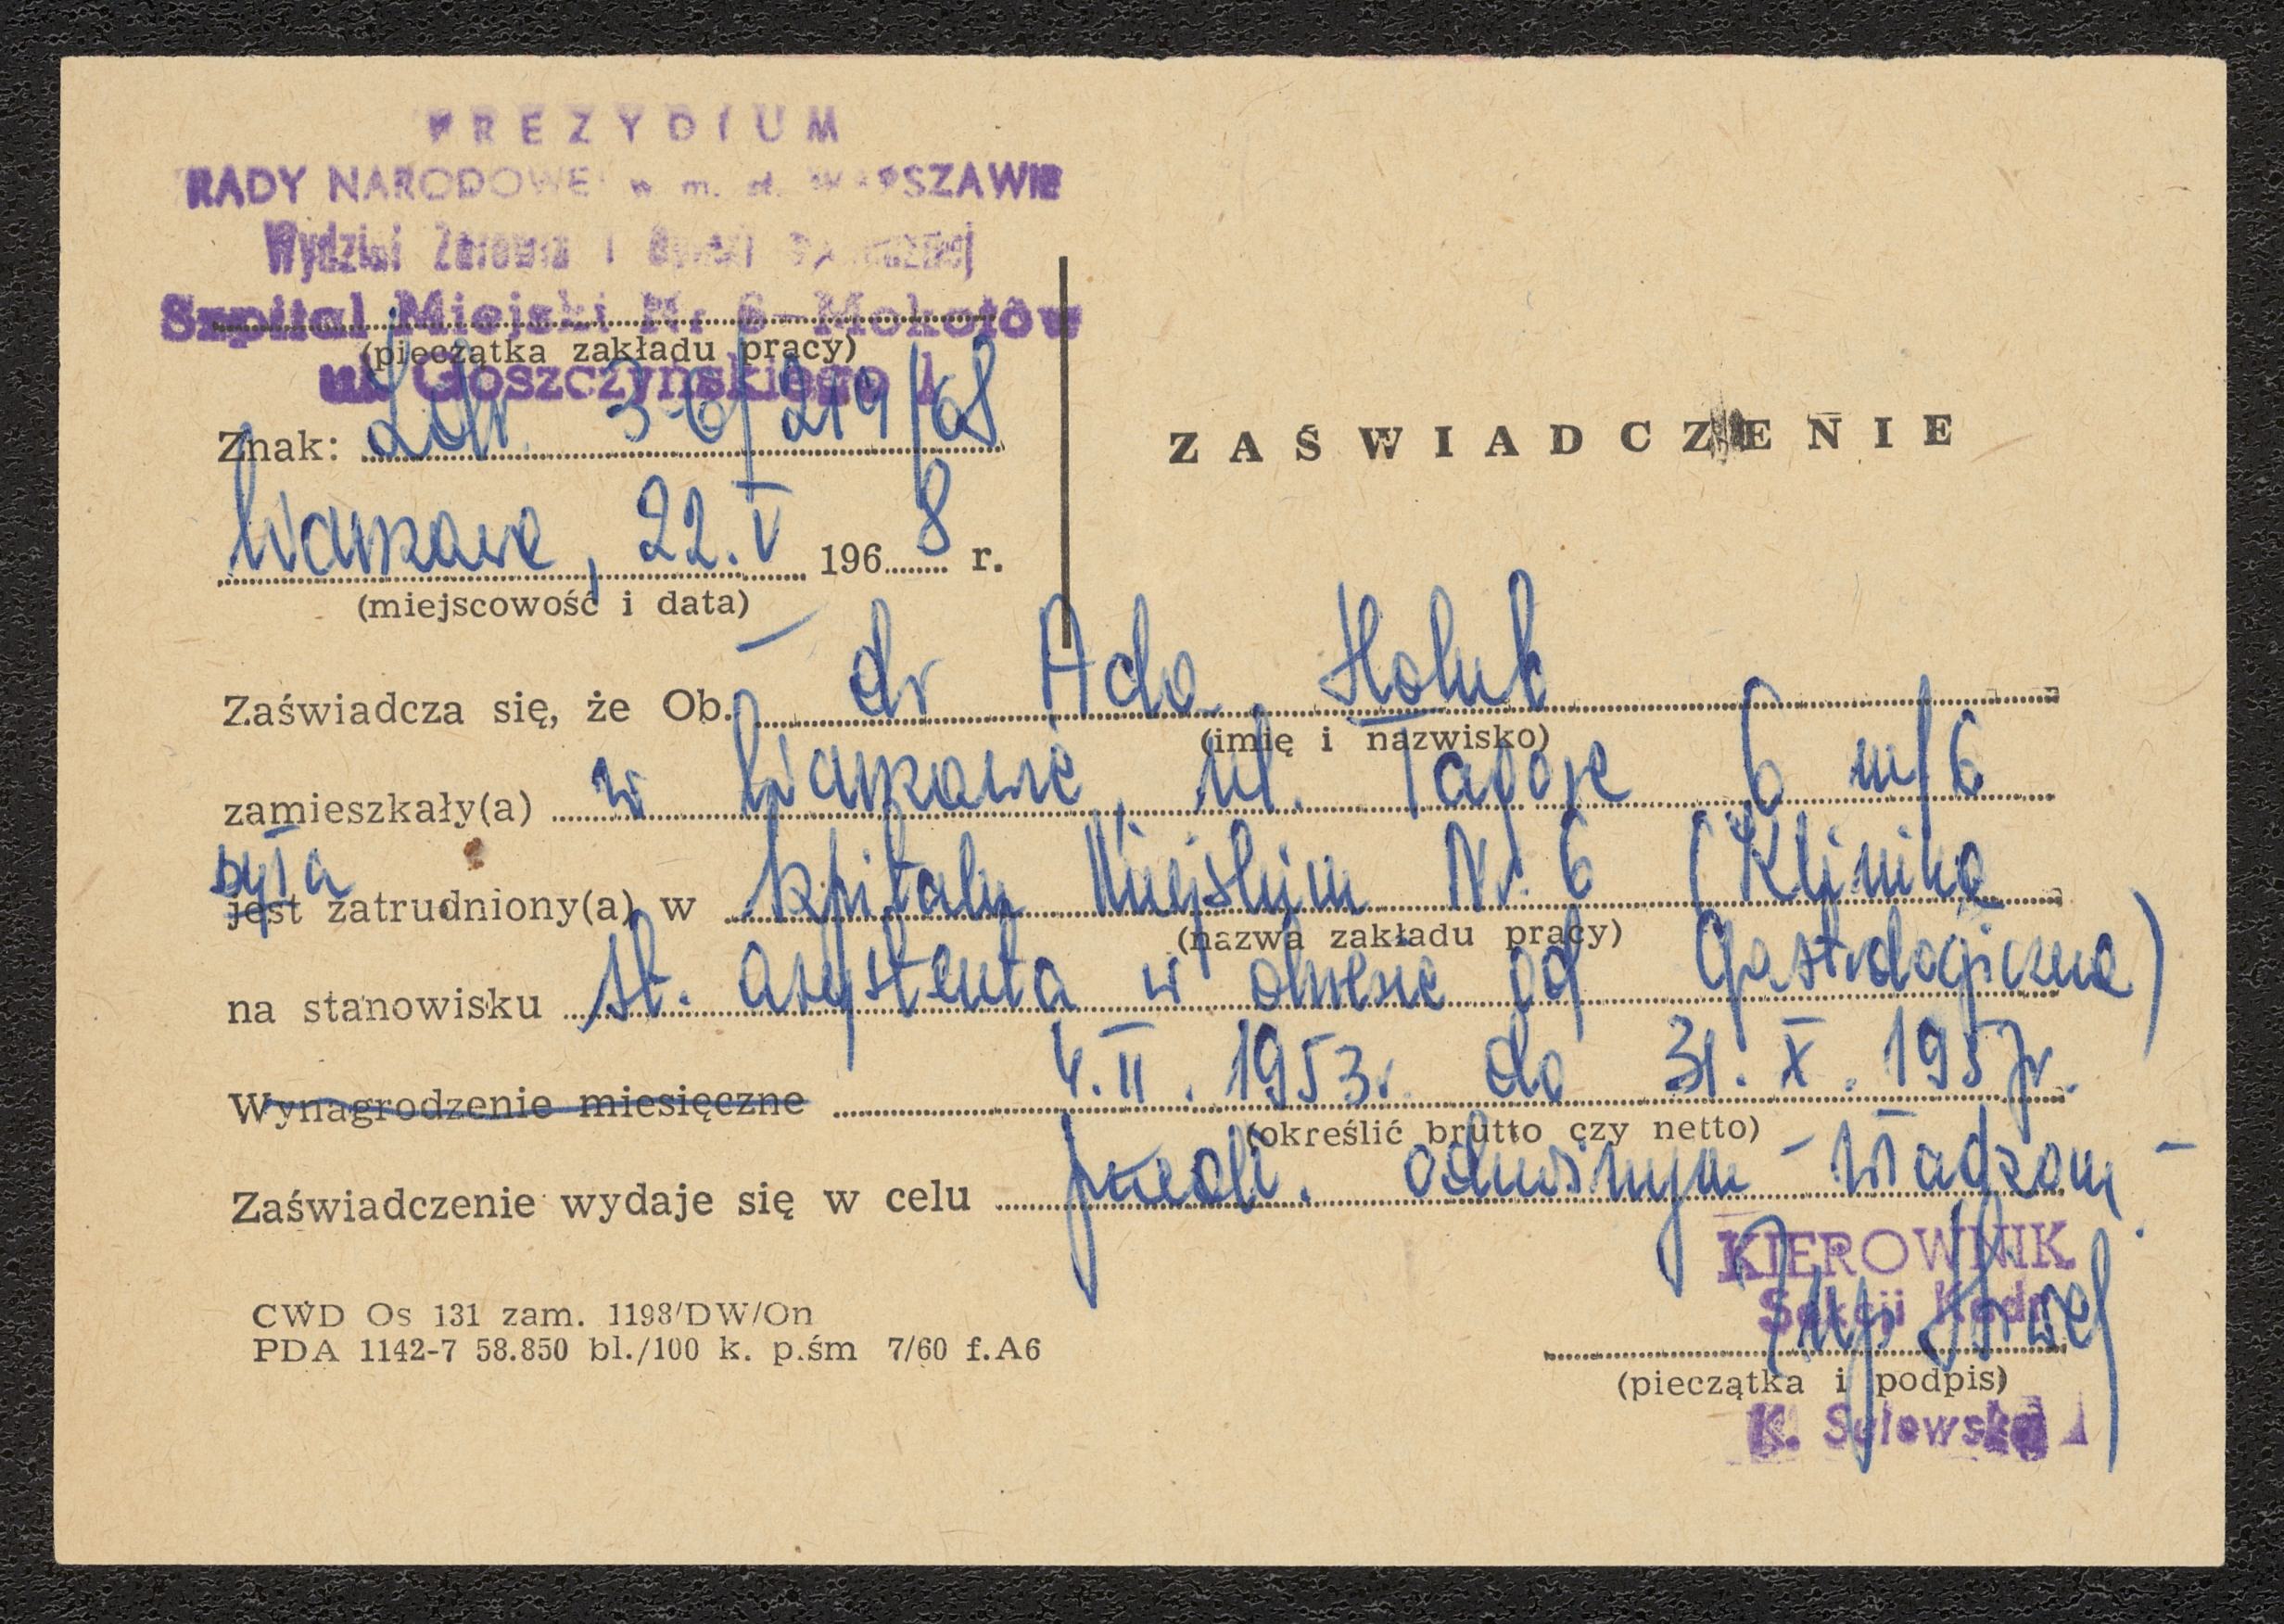 PREZYDIUM
RADY NARODOWEJ w m. st. WARSZAWIE
Wydział Zdrowia i Opieki Społecznej
Szpital Miejski Nr 6-Mokotów
(pieczątka zakładu pracy)
ul. Goszczyńskiego 1
Znak: 219/68
Warszawa, 22.V 1968 r.
(miejscowość i data)
ZAŚWIADCZENIE
Zaświadcza się, że Ob. dr Ada Holub
(imię i nazwisko)
zamieszkały(a) w Warszawie, ul. Tagore 6 m/6
była
jest zatrudniony(a) w Szpitalu Miejskim Nr. 6 (Klinika
(nazwa zakładu pracy)
Gastrologiczna)
na stanowisku st. asystenta w okresie od
Wynagrodzenie miesięczne 4.II.1953r. do 31.X.1957r.
(określić brutto czy netto)
Zaświadczenie wydaje się w celu przedł. odnośnym władzom.
KIEROWNIK
Sekcji Kadr
(pieczątka i podpis)
CWD Os 131 zam. 1198/DW/On
PDA 1142-7 58.850 bl./100 k. p.śm 7/60 f.A6